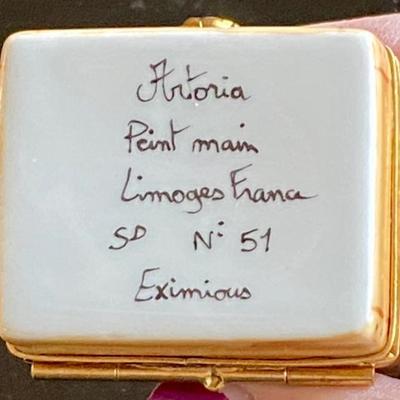 Artoria
Peint main
Limoges France
SD N° 51
Eximious